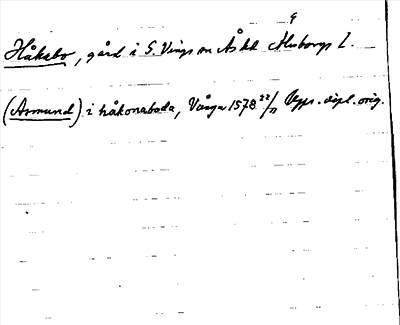 Håkabo, gård i S. Vings sn Ås hd Älvsborgs l.
(Asmund) i håkonaboda, Vånga 1578 22/11 Upps. dipl. orig.